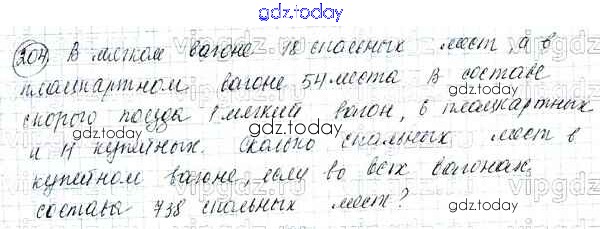 gdz.today
204 В мягком вагоне 18 спальных мест, а в
плацкартном вагоне 54 места В составе
скорого поезда 1 мягкий вагон, 6 плацкартных
и 11 купейных. Сколько спальных мест в
купейном вагоне, если во всех вагонах
состава 738 спальных мест?